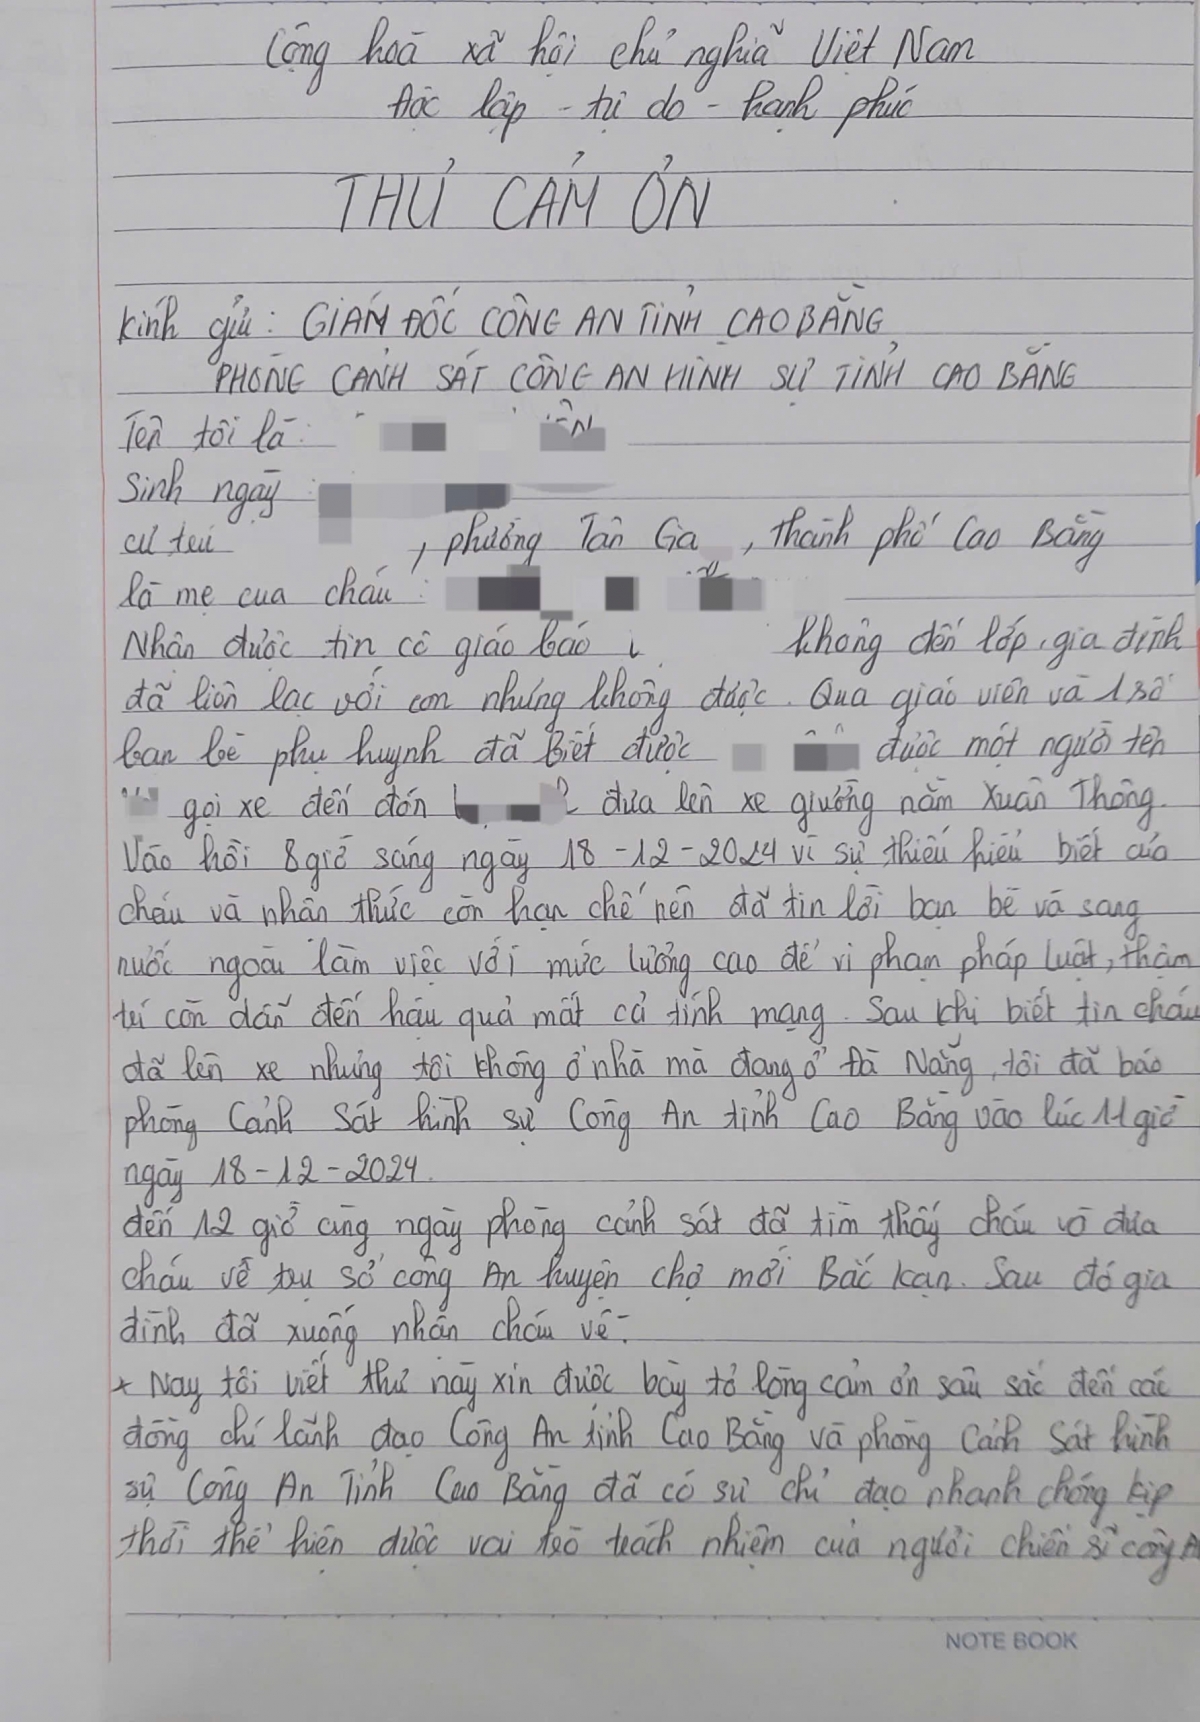 Cộng hoà xã hội chủ nghĩa Việt Nam
Độc lập - tự do - hạnh phúc
THƯ CẢM ƠN
Kính gửi: GIÁM ĐỐC CÔNG AN TỈNH CAO BẰNG
PHÒNG CẢNH SÁT CÔNG AN HÌNH SỰ TỈNH CAO BẰNG
Tên tôi là:
Sinh ngày:
cư trú , phường Tân Gia, thành phố Cao Bằng
là mẹ của cháu:
Nhân được tin cô giáo báo không đến lớp, gia đình
đã liên lạc với con nhưng không được. Qua giáo viên và 1 số
bạn bè phụ huynh đã biết được được một người tên
gọi xe đến đón đưa lên xe giường nằm Xuân Thông.
Vào hồi 8 giờ sáng ngày 18-12-2024 vì sự thiếu hiểu biết của
cháu và nhận thức còn hạn chế nên đã tin lời bạn bè và sang
nước ngoài làm việc với mức lương cao để vi phạm pháp luật, thậm
trí còn dẫn đến hậu quả mất cả tính mạng. Sau khi biết tin cháu
đã lên xe nhưng tôi không ở nhà mà đang ở Đà Nẵng, tôi đã báo
phòng Cảnh Sát hình sự Công An tỉnh Cao Bằng vào lúc 11 giờ
ngày 18-12-2024.
đến 12 giờ cùng ngày phòng cảnh sát đã tìm thấy cháu và đưa
cháu về trụ sở công An huyện chợ mới Bắc kạn. Sau đó gia
đình đã xuống nhận cháu về.
+ Nay tôi viết thư này xin được bày tỏ lòng cảm ơn sâu sắc đến các
đồng chí lãnh đạo Công An tỉnh Cao Bằng và phòng Cảnh Sát hình
sự Công An Tỉnh Cao Bằng đã có sự chỉ đạo nhanh chóng kịp
thời thể hiện được vai trò trách nhiệm của người chiến sĩ công A
NOTE BOOK